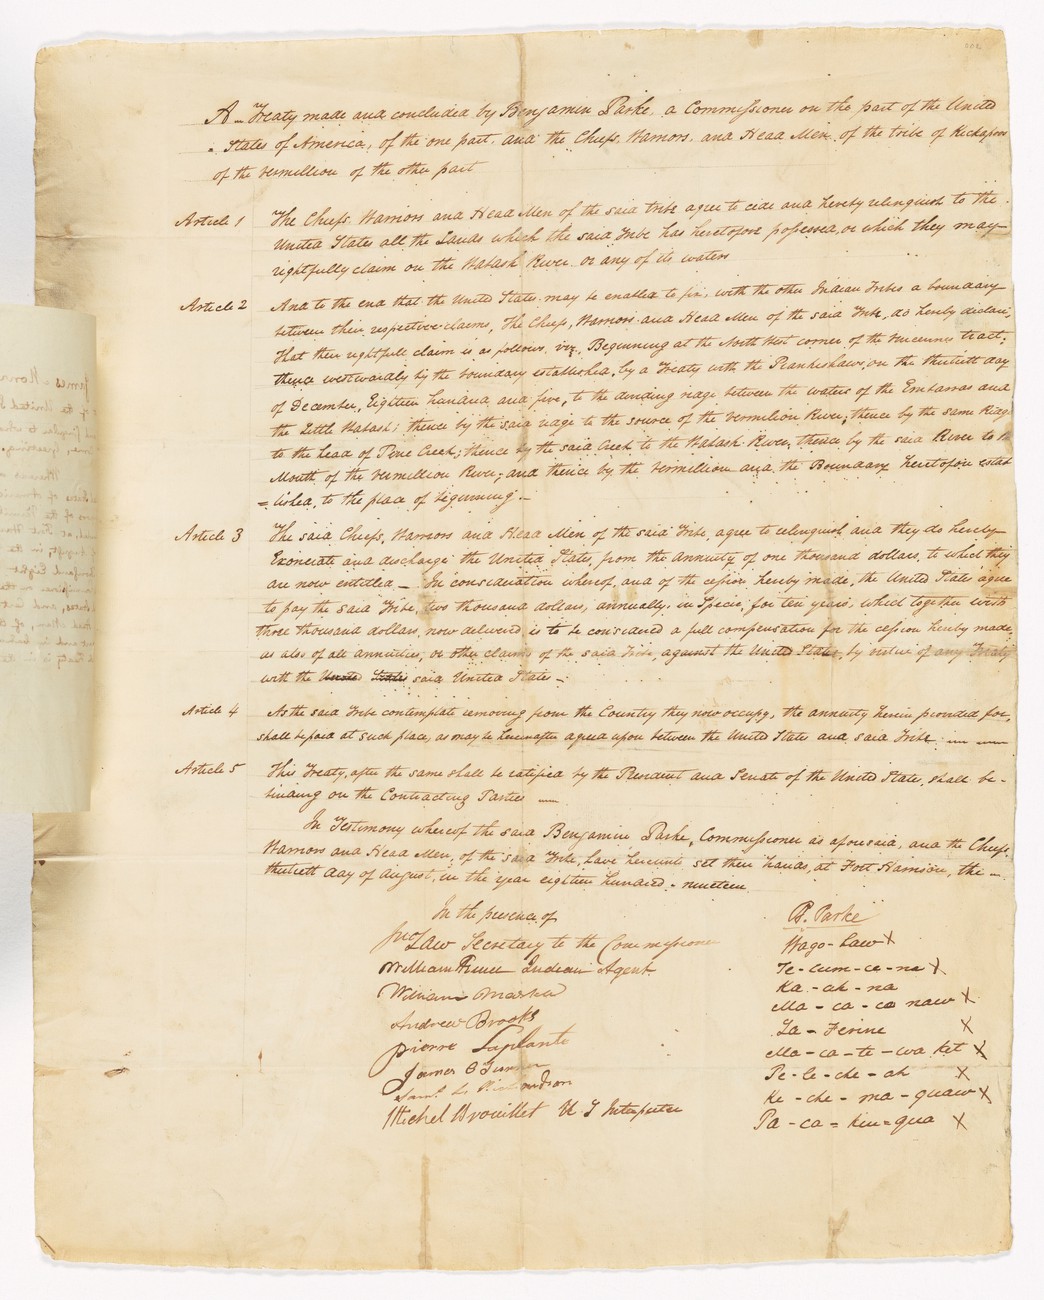 A Treaty made and concluded by Benjamin Parke, a Commissioner on the part of the United
States of America, of the one part, and the Chiefs, Warriors, and Head Men of the tribe of Kickapoos
of the Vermillion of the other part
Article 1 The Chiefs, Warriors and Head Men of the said tribe agree to cede and hereby relinquish to the
United States all the Lands which the said Tribe has heretofore possessed, or which they may
rightfully claim on the Wabash River or any of its waters
Article 2 And to the end that the United States may be enabled to fix, with the other Indian Tribes a boundary
between their respective claims, The Chiefs, Warriors and Head Men of the said Tribe, do hereby declare,
that their rightfull claim is as follows, viz, Beginning at the North West corner of the Vincennes tract;
thence westwardly by the boundary established, by a Treaty with the Piankeshaws, on the thirtieth day
of December, Eighteen hundred and five, to the dividing ridge between the waters of the Embarras and
the Little Wabash; thence by the said ridge to the source of the Vermilion River; thence by the same Ridge
to the head of Pine Creek; thence by the said Creek to the Wabash River, thence by the said River to the
Mouth of the Vermillion River; and thence by the Vermillion and, the Boundary heretofore estab
=lished, to the place of beginning.
Article 3 The said Chiefs, Warriors and Head Men of the said Tribe, agree to relinquish and they do hereby
Exonerate and discharge the United States, from the annuity of one thousand dollars, to which they
are now entitled — In consideration whereof, and of the cession hereby made, the United States agree
to pay the said Tribe, two thousand dollars, annually, in Specie, for ten years, which together with
three thousand dollars, now delivered, is to be considered a full compensation for the cession hereby made,
as also of all annuities, or other claims of the said Tribe, against the United States, by virtue of any Treaty
with the United Tribes said United States —
Article 4 As the said Tribe contemplate removing from the Country they now occupy, the annuity herein provided for,
shall be paid at such place, as may be hereinafter agreed upon between the United States and said Tribe.
Article 5 This Treaty, after the same shall be ratified by the President and Senate of the United States, shall be
binding on the Contracting Parties —
In Testimony whereof the said Benjamin Parke, Commissioner as aforesaid, and the Chiefs,
Warriors and Head Men, of the said Tribe, have hereunto set their hands, at Fort Harrison, the —
thirtieth day of August, in the year eighteen hundred & nineteen
In the presence of
B. Parke
Jno Law Secretary to the Commissioner
Wago-haw X
William Prince Indian Agent
Te-cum-ce-na X
William Markle
Ka-ah-na
Andrew Brooks
Ma-ca-ca naw X
Pierre Laplante
La-Ferine X
James C Turner
Ma-ca-te-wa ket X
Saml L Richardson
Pe-le-che-ah X
Michel Brouillet U S Interpreter
Ke-che-ma-quaw X
Pa-ca=kin=qua X